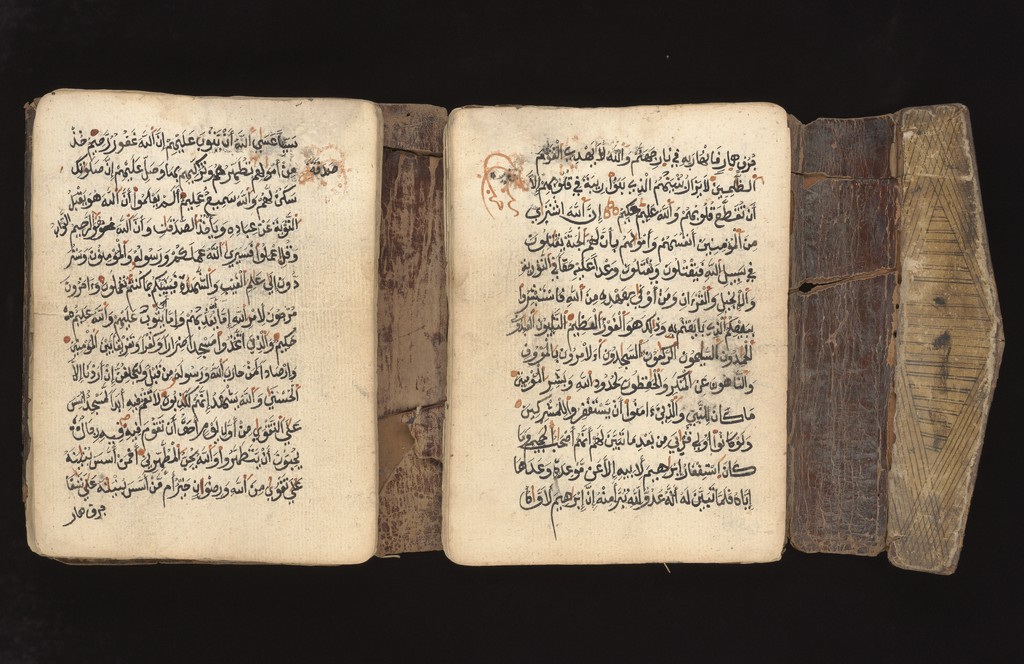 سيئا عسى الله أن يتوب عليهم إن الله غفور رحيم خذ
من أمولهم تطهرهم وتزكيهم بها وصل عليهم إن صلوتك
صدقة
سكن لهم والله سميع عليم ألم يعلموا أن الله هو يقبل
التوبة عن عباده ويأخذ الصدقت وأن الله هو الرحيم التواب
وقل اعملوا فسيرى الله عملكم ورسوله والمومنون وستر
دون إلى علم الغيب والشهدة فينبئكم بما كنتم تعملون وءاخرون
مرجون لأمر الله إما يعذبهم وإما يتوب عليهم والله عليم
حكيم والذين اتخذوا مسجدا ضرارا وكفرا وتفريقا بين المومنين
وإرصادا لمن حارب الله ورسوله من قبل وليحلفن إن أردنا إلا
الحسنى والله يشهد إنهم لكذبون لا تقم فيه أبدا لمسجد أسس
على التقوى من أول يوم أحق أن تقوم فيه فيه رجال
يحبون أن يتطهروا والله يحب المطهرين أفمن أسس بنينه
على تقوى من الله ورضوان خير أم من أسس بنينه على شفا
جرف هار
جرف هار فانهار به في نار جهنم والله لا يهدي القوم
الظلمين لا يزال بنينهم الذي بنوا ريبة في قلوبهم إلا
أن تقطع قلوبهم والله عليم حكيم إن الله اشترى
من المومنين أنفسهم وأمولهم بأن لهم الجنة يقتلون
في سبيل الله فيقتلون ويقتلون وعدا عليه حقا في التورية
والإنجيل والقرءان ومن أوفى بعهده من الله فاستبشروا
ببيعكم الذي بايعتم به وذلك هو الفوز العظيم التئبون العبدون
الحمدون السئحون الركعون السجدون الأمرون بالمعروف
والناهون عن المنكر والحفظون لحدود الله وبشر المومنين
ما كان للنبي والذين ءامنوا أن يستغفروا للمشركين
ولو كانوا أولي قربى من بعد ما تبين لهم أنهم أصحب الجحيم وما
كان استغفار إبرهيم لأبيه إلا عن موعدة وعدها
إياه فلما تبين له أنه عدو لله تبرأ منه إن إبرهيم لأواه